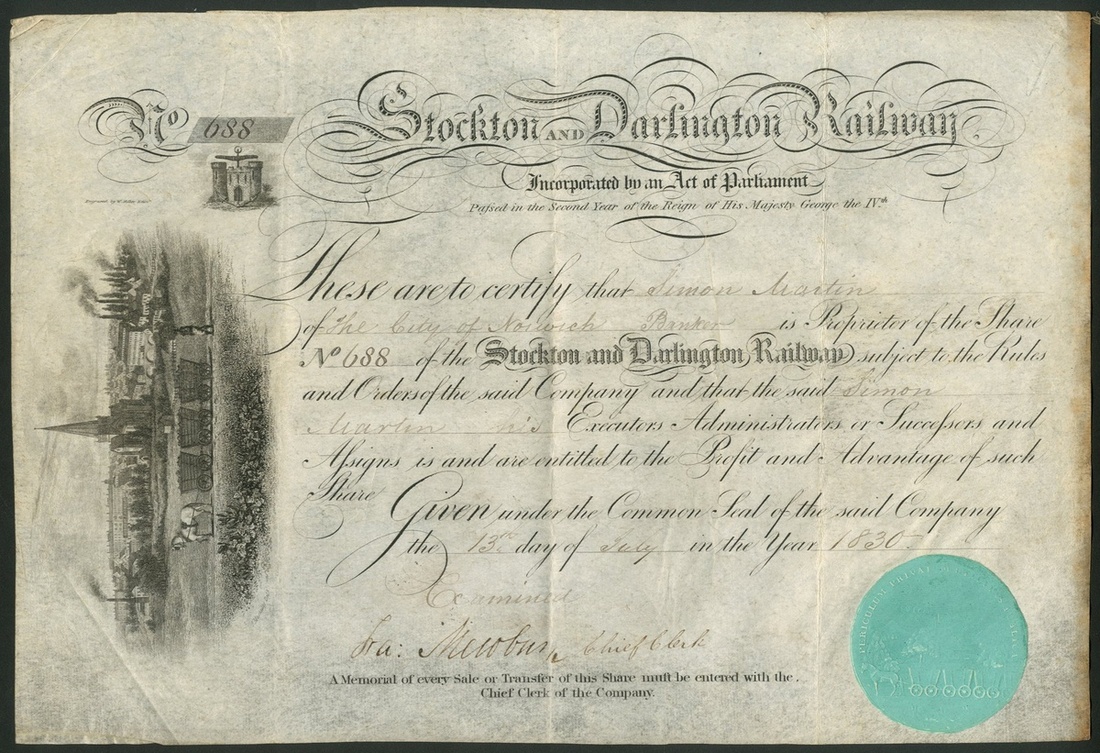 No 688
Stockton AND Darlington Railway
Incorporated by an Act of Parliament
Paſsed in the Second Year of the Reign of His Majesty George the IV.th
These are to certify that Simon Martin
of The City of Norwich Banker is Proprietor of the Share
No 688 of the Stockton and Darlington Railway subject to the Rules
and Orders of the said Company and that the said Simon
Martin his Executors Administrators or Succeſsors and
Aſsigns is and are entitled to the Profit and Advantage of such
Share
Given under the Common Seal of the said Company
the 13th day of July in the Year 1830
Examined
Fra: Mewburn Chief Clerk
A Memorial of every Sale or Transfer of this Share muſt be entered with the
Chief Clerk of the Company.
PERICULUM PRIVATUM